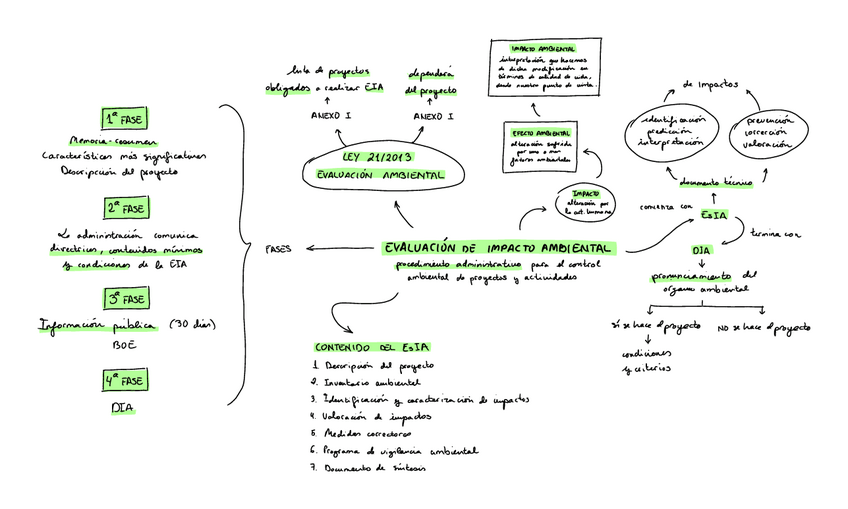 1ª FASE
Memoria-resumen
Características más significativas
Descripción del proyecto
2ª FASE
La administración comunica
directrices, contenidos mínimos
y condiciones de la EIA
3ª FASE
Información pública (30 días)
BOE
4ª FASE
DIA
FASES
lista de proyectos
obligados a realizar EIA
ANEXO I
dependerá
del proyecto
ANEXO I
LEY 21/2013
EVALUACIÓN AMBIENTAL
EVALUACIÓN DE IMPACTO AMBIENTAL
procedimiento administrativo para el control
ambiental de proyectos y actividades
IMPACTO AMBIENTAL
interpretación que hacemos
de dicha modificación en
términos de calidad de vida,
desde nuestro punto de vista.
EFECTO AMBIENTAL
alteración sufrida
por uno o más
factores ambientales
IMPACTO
alteración por
la act. humana
de impactos
identificación
predicción
interpretación
prevención
corrección
valoración
documento técnico
comienza con
EsIA
termina con
DIA
pronunciamiento del
órgano ambiental
sí se hace el proyecto
NO se hace el proyecto
condiciones
y criterios
CONTENIDO DEL EsIA
1. Descripción del proyecto
2. Inventario ambiental
3. Identificación y caracterización de impactos
4. Valoración de impactos
5. Medidas correctoras
6. Programa de vigilancia ambiental
7. Documento de síntesis